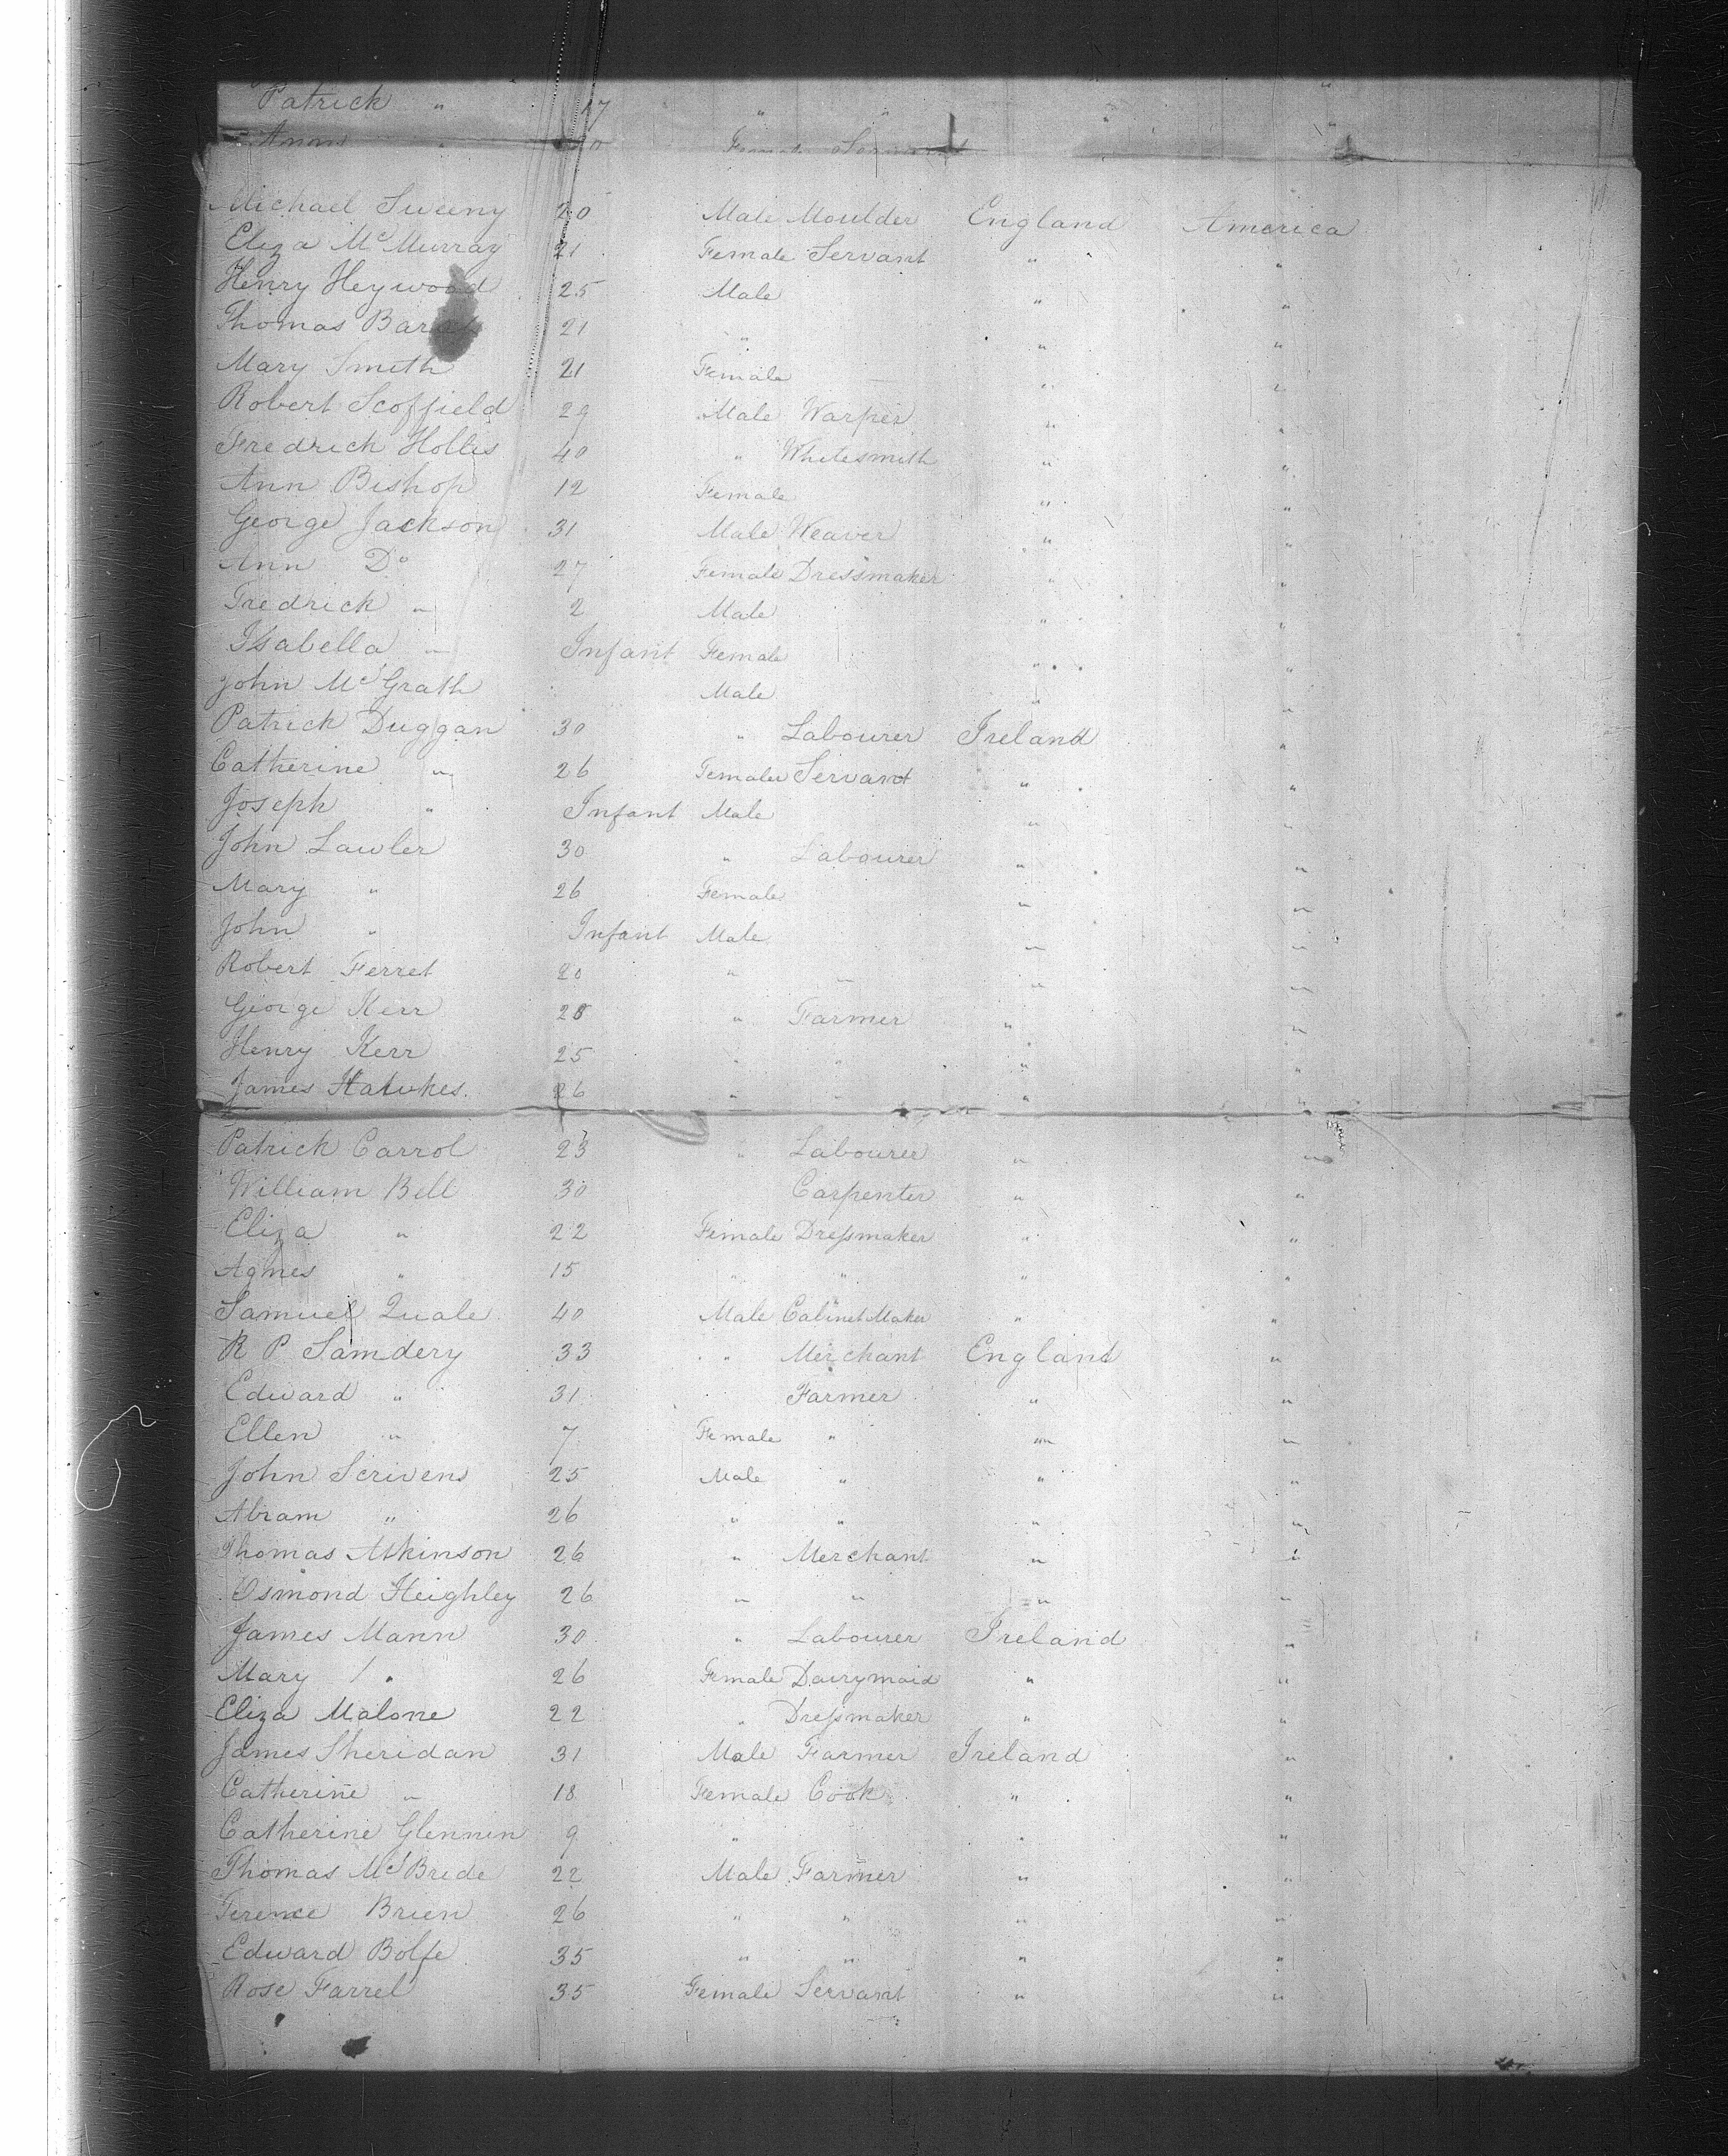 Patrick " 17 " " " "
Female Servant
Michael Sweeny 20 Male Moulder England America
Eliza Mc Murray 21 Female Servant " "
Henry Heywood 25 Male " "
Thomas 21 " " "
Mary Smith 21 Female — " "
Robert Scoffield 29 Male Warper " "
Fredrick Hollis 40 " Whitesmith " "
Ann Bishop 12 Female " "
George Jackson 31 Male Weaver " "
Ann Do 27 Female Dressmaker " "
Fredrick " 2 Male " "
Isabella " Infant Female " "
John Mc Grath Male " "
Patrick Duggan 30 " Labourer Ireland "
Catherine " 26 Female Servant " "
Joseph " Infant Male " "
John Lawler 30 " Labourer " "
Mary " 26 Female " "
John " Infant Male " "
Robert Ferret 20 " " " "
George Kerr 28 " Farmer " "
Henry Kerr 25 " " " "
James Hawkes. 26 " " " "
Patrick Carrol 23 " Labourer " "
William Bell 30 Carpenter " "
Eliza " 22 Female Dressmaker " "
Agnes " 15 " " " "
Samuel Quale 40 Male Cabinet Maker " "
R P Samdery 33 " Merchant England "
Edward " 31 Farmer " "
Ellen " 7 Female " " "
John Scrivens 25 Male " " "
Abram " 26 " " " "
Thomas Atkinson 26 " Merchant " "
Osmond Heighley 26 " " " "
James Mann 30 " Labourer Ireland "
Mary " 26 Female Dairymaid " "
Eliza Malone 22 " Dressmaker " "
James Sheridan 31 Male Farmer Ireland "
Catherine " 18 Female Cook " "
Catherine Glennin 9 " " "
Thomas Mc Bride 22 Male Farmer " "
Terence Brien 26 " " " "
Edward Bolfe 35 " " " "
Rose Farrel 35 Female Servant " "